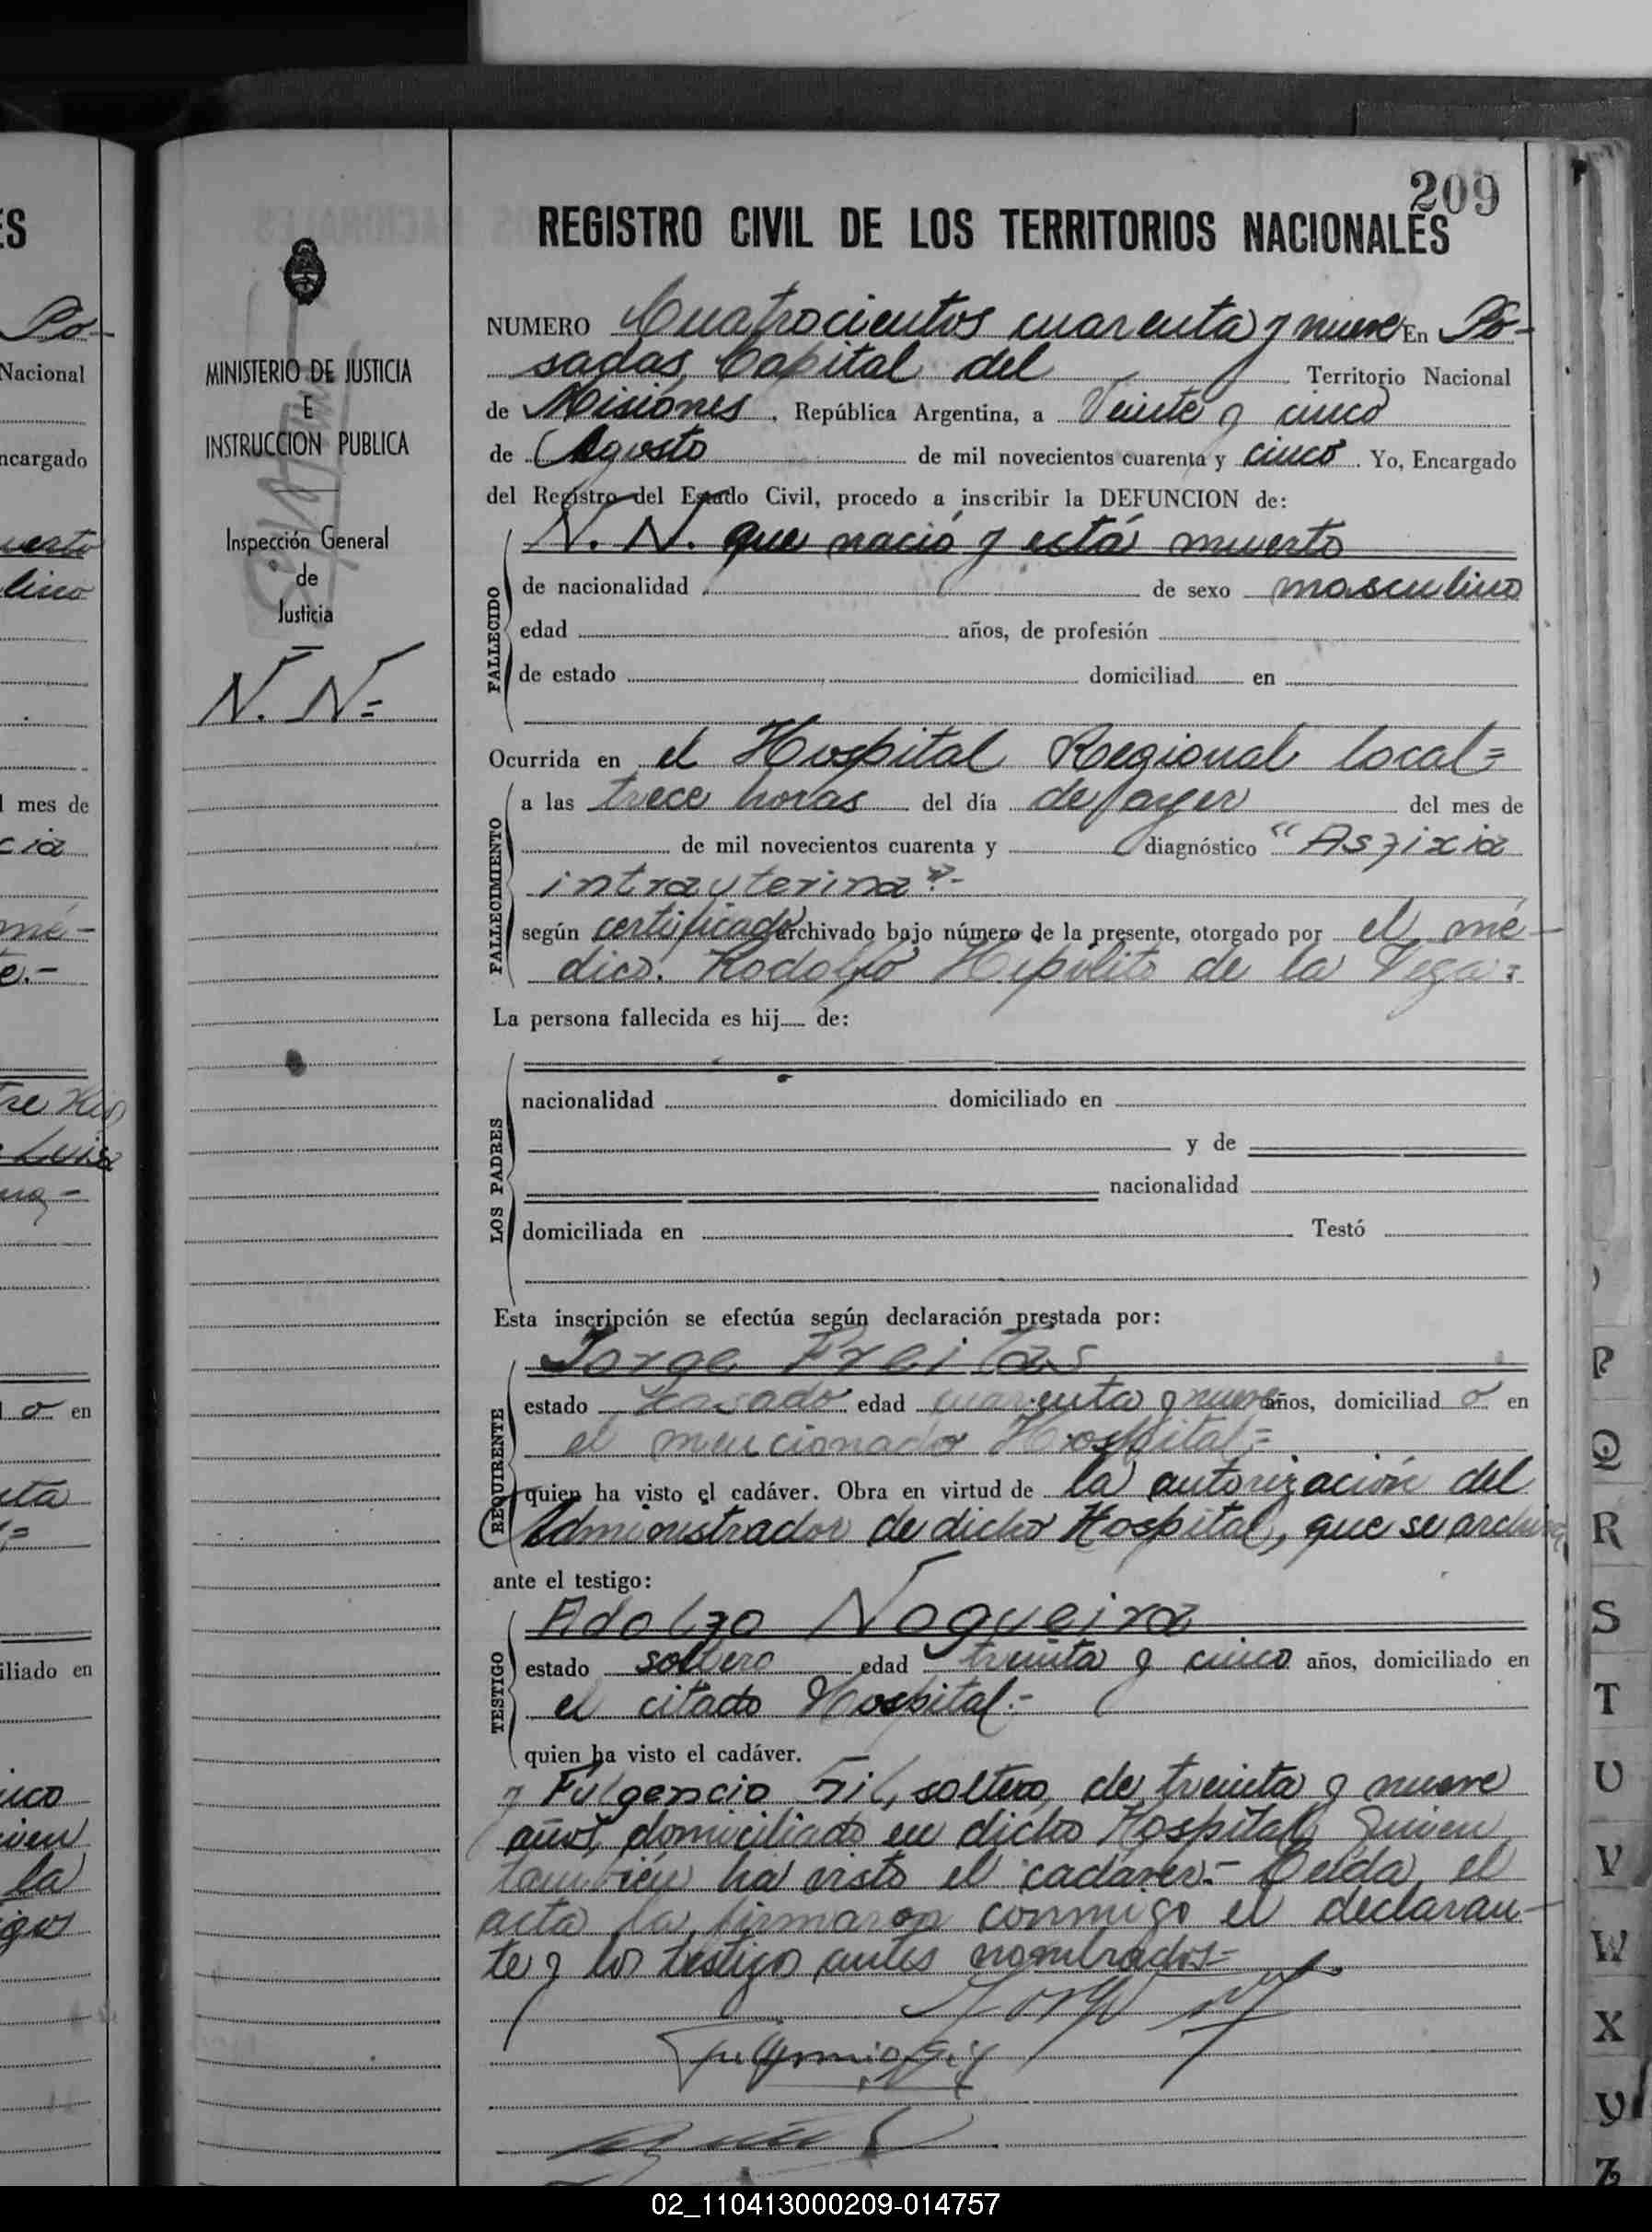 209
REGISTRO CIVIL DE LOS TERRITORIOS NACIONALES
MINISTERIO DE JUSTICIA
E
INSTRUCCION PUBLICA
Inspección General
de
Justicia
N. N=
NUMERO Cuatrocientos cuarenta y nueve En Po-
sadas, Capital del Territorio Nacional
de Misiones, República Argentina, a Veinte y cinco
de Agosto de mil novecientos cuarenta y cinco. Yo, Encargado
del Registro del Estado Civil, procedo a inscribir la DEFUNCION de:
N. N. que nació y está muerto
FALLECIDO
de nacionalidad de sexo masculino
edad años, de profesión
de estado domiciliad en
Ocurrida en el Hospital Regional local=
FALLECIMIENTO
a las trece horas del día de ayer del mes de
de mil novecientos cuarenta y diagnóstico "Asfixia
intrauterina".-
según certificado archivado bajo número de la presente, otorgado por el mé-
dico. Rodolfo Hipólito de la Vega=
La persona fallecida es hij de:
LOS PADRES
nacionalidad domiciliado en
y de
nacionalidad
domiciliada en Testó
Esta inscripción se efectúa según declaración prestada por:
Jorge Freitas
REQUIRENTE
estado casado edad cuarenta y nueve años, domiciliad o en
el mencionado Hospital=
quien ha visto el cadáver. Obra en virtud de la autorización del
Administrador de dicho Hospital, que se archiva,
ante el testigo:
Adolfo Nogueira
TESTIGO
estado soltero edad treinta y cinco años, domiciliado en
el citado Hospital=
quien ha visto el cadáver.
y Fulgencio Gil, soltero, de treinta y nueve
años, domiciliado en dicho Hospital, quien
también ha visto el cadáver.- Leída el
acta la firmaron conmigo el declaran-
te y los testigo antes nombrados=
ES
Po-
Nacional
encargado
mes de
mé-
o en
iliado en
la
P
Q
R
S
T
U
V
W
X
Y
Z
02_110413000209-014757